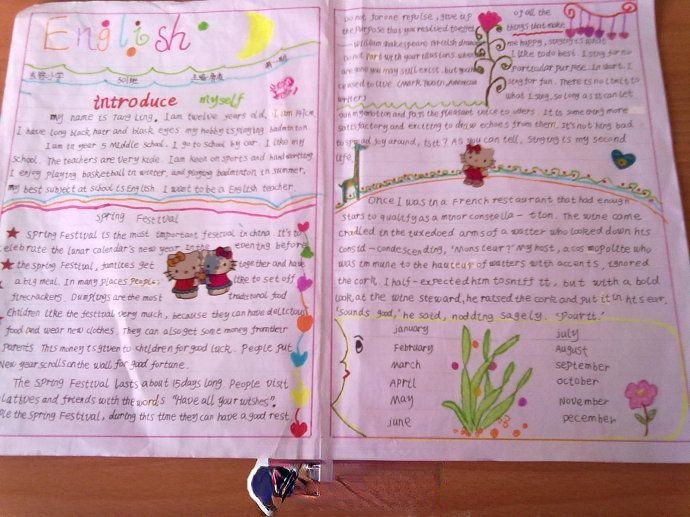 English
introduce myself
my name is Tang Ling. I am twelve years old, I am
I have long black hair and black eyes. my hobby is playing badminton.
I am in year 5 Middle school. I go to school by car. I like my
school. The teachers are very kide. I am keen on sports and hard working
I enjoy playing basketball in winter, and playing badminton in summer,
my best subject at school is English. I want to be a English teacher.
Spring Festival
Spring Festival is the most important feserival in china. It's to
celebrate the lunar calendar's new year. In the evening before
the spring Festival, families get together and have
a big meal. In many places People like to set off
firecrackers. Dumplings are the most traditional food
Children like the festival very much, because they can have delicious
food and wear new clothes. They can also get some money from their
parents. This money is given to children for good luck. People put
New year scrolls on the wall for good fortune.
The Spring Festival lasts about 15 days long. People visit
latives and friends with the words "Have all your wishes".
ple the Spring Festival, during this time they can have a good rest.
Do not, for one repulse, give up
the purpose that you resolved to effect
William Shakespeare British dramatist
Dont part with your illusions when
are gone you may still exist, but you
ceased to live (Mark Twain American
writer)
of all the
things that make
me happy, singing is what
I like to do best. I sing for no
particular purpose. In short, I
sing for fun. There is no limit to
what I sing, so long as it can let
out my emotion and pass the pleasant voice to others. It is something more
satisfactory and exciting to draw echoes from them. It's nothing bad
to spread joy around, isn't? As you can tell, singing is my second
life.
Once I was in a French restaurant that had enough
stars to qualify as a minor constella-tion. The wine came
cradled in the tuxedoed arms of a waiter who looked down his
consid-condescending, "Monsieur?" My host, a cosmopolite who
was immune to the hauteur of waiters with accents, ignored
the cork. I half-expected him to sniff it, but with a bold
look at the wine steward, he raised the cork and put it in his ear.
"Sounds good," he said, nodding sagely. "Pour it."
january
February
March
April
May
june
july
August
september
October
November
December